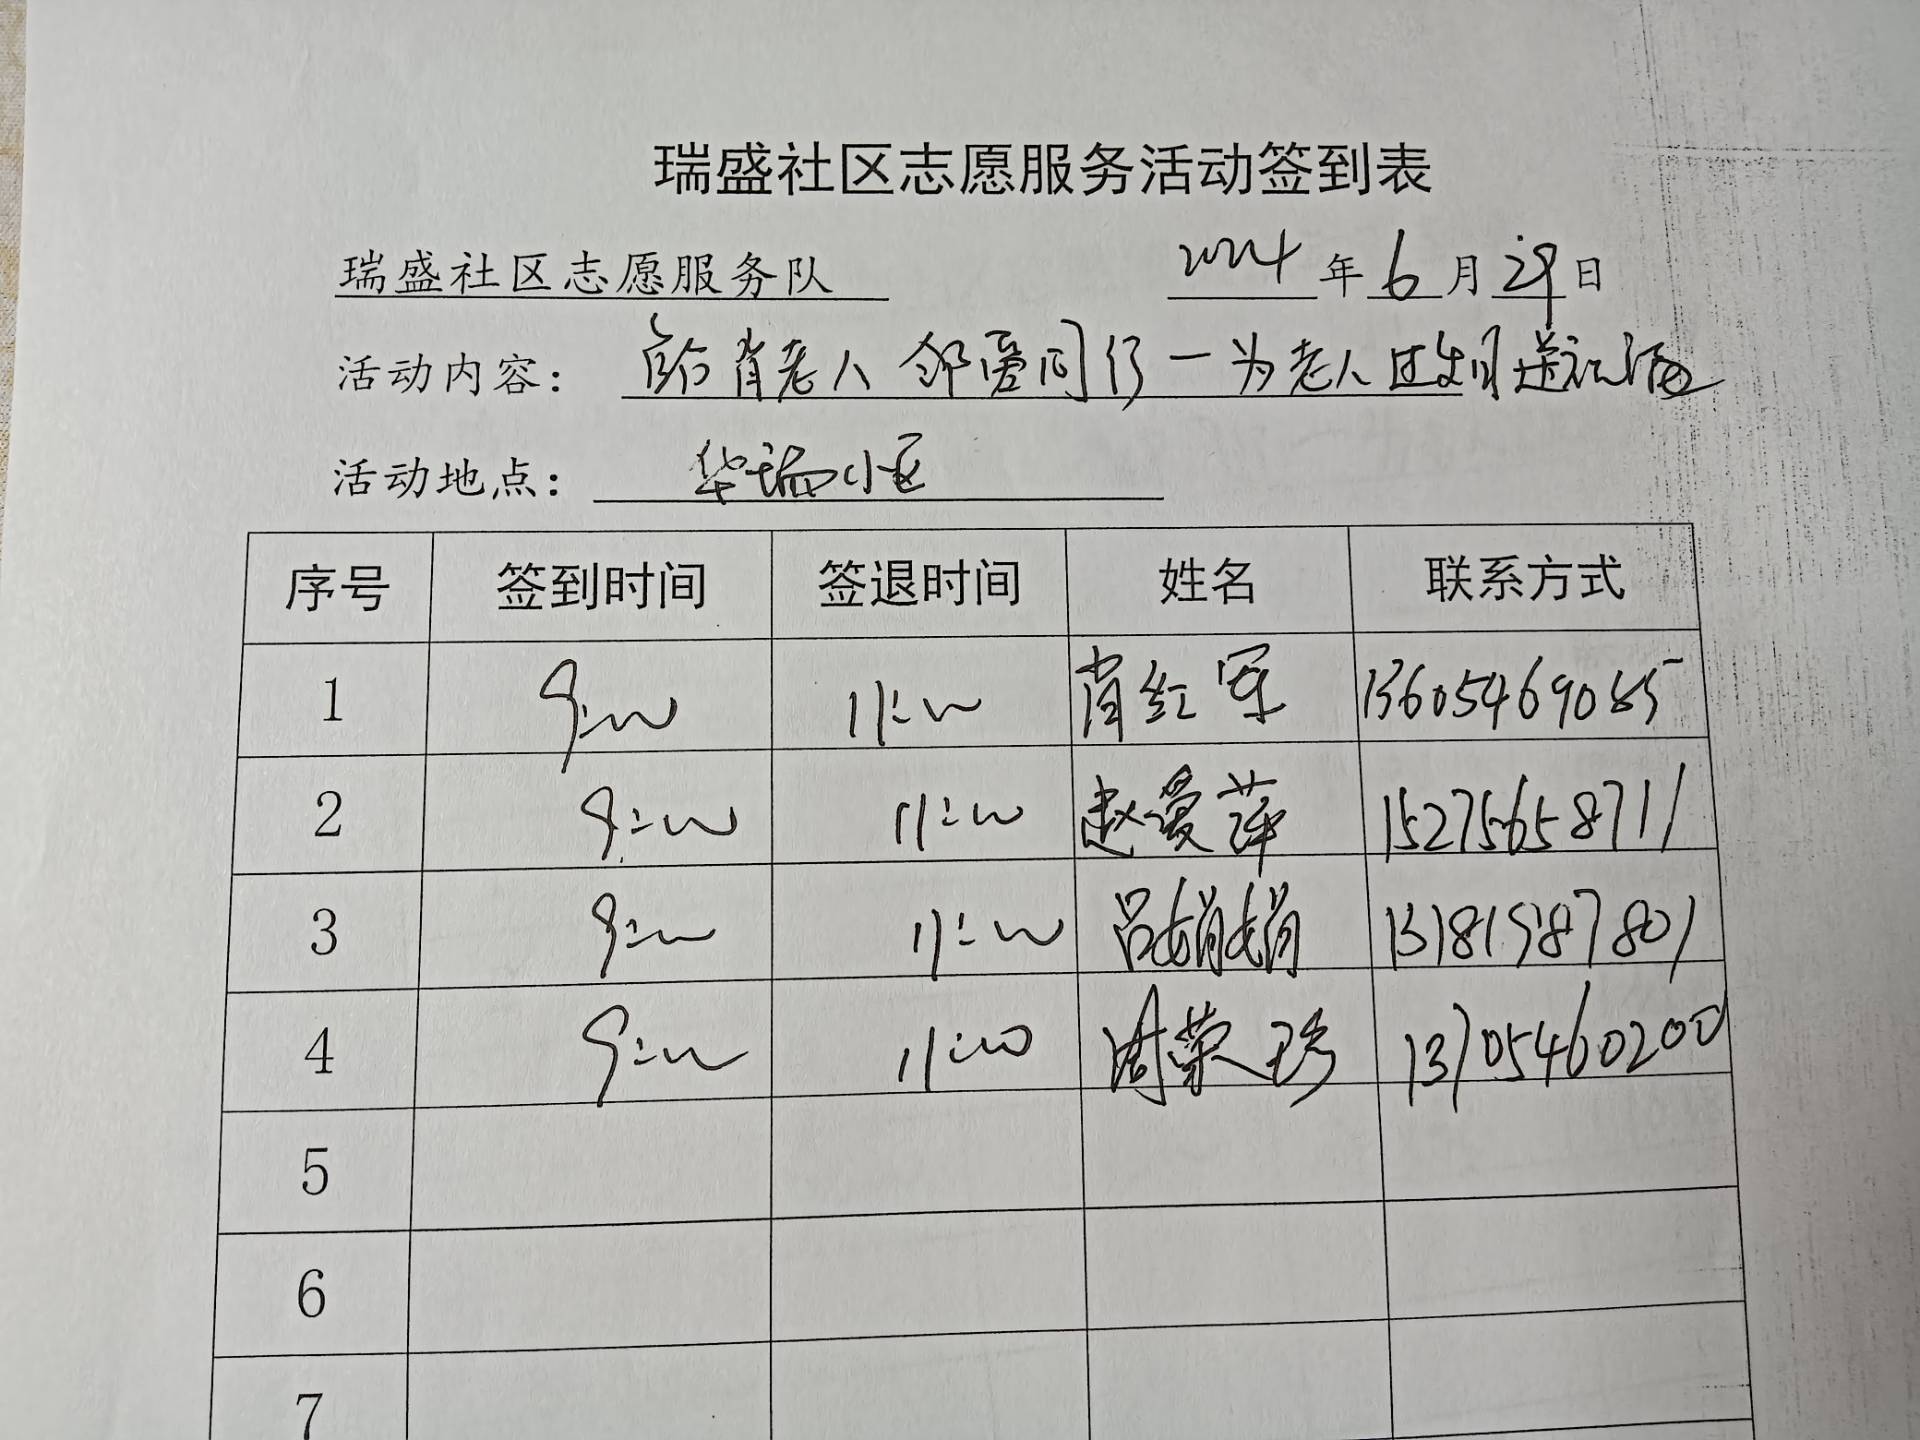 瑞盛社区志愿服务活动签到表
瑞盛社区志愿服务队 2024年6月29日
活动内容: 老人 邻爱同行一为老人过生日送祝福
活动地点: 华瑞小区
序号 签到时间 签退时间 姓名 联系方式
1 9:00 11:00 肖红军 13605469085
2 9:00 11:00 赵曼萍 15275658711
3 9:00 11:00 吕娟娟 13181987801
4 9:00 11:00 周荣珍 13705460200
5
6
7